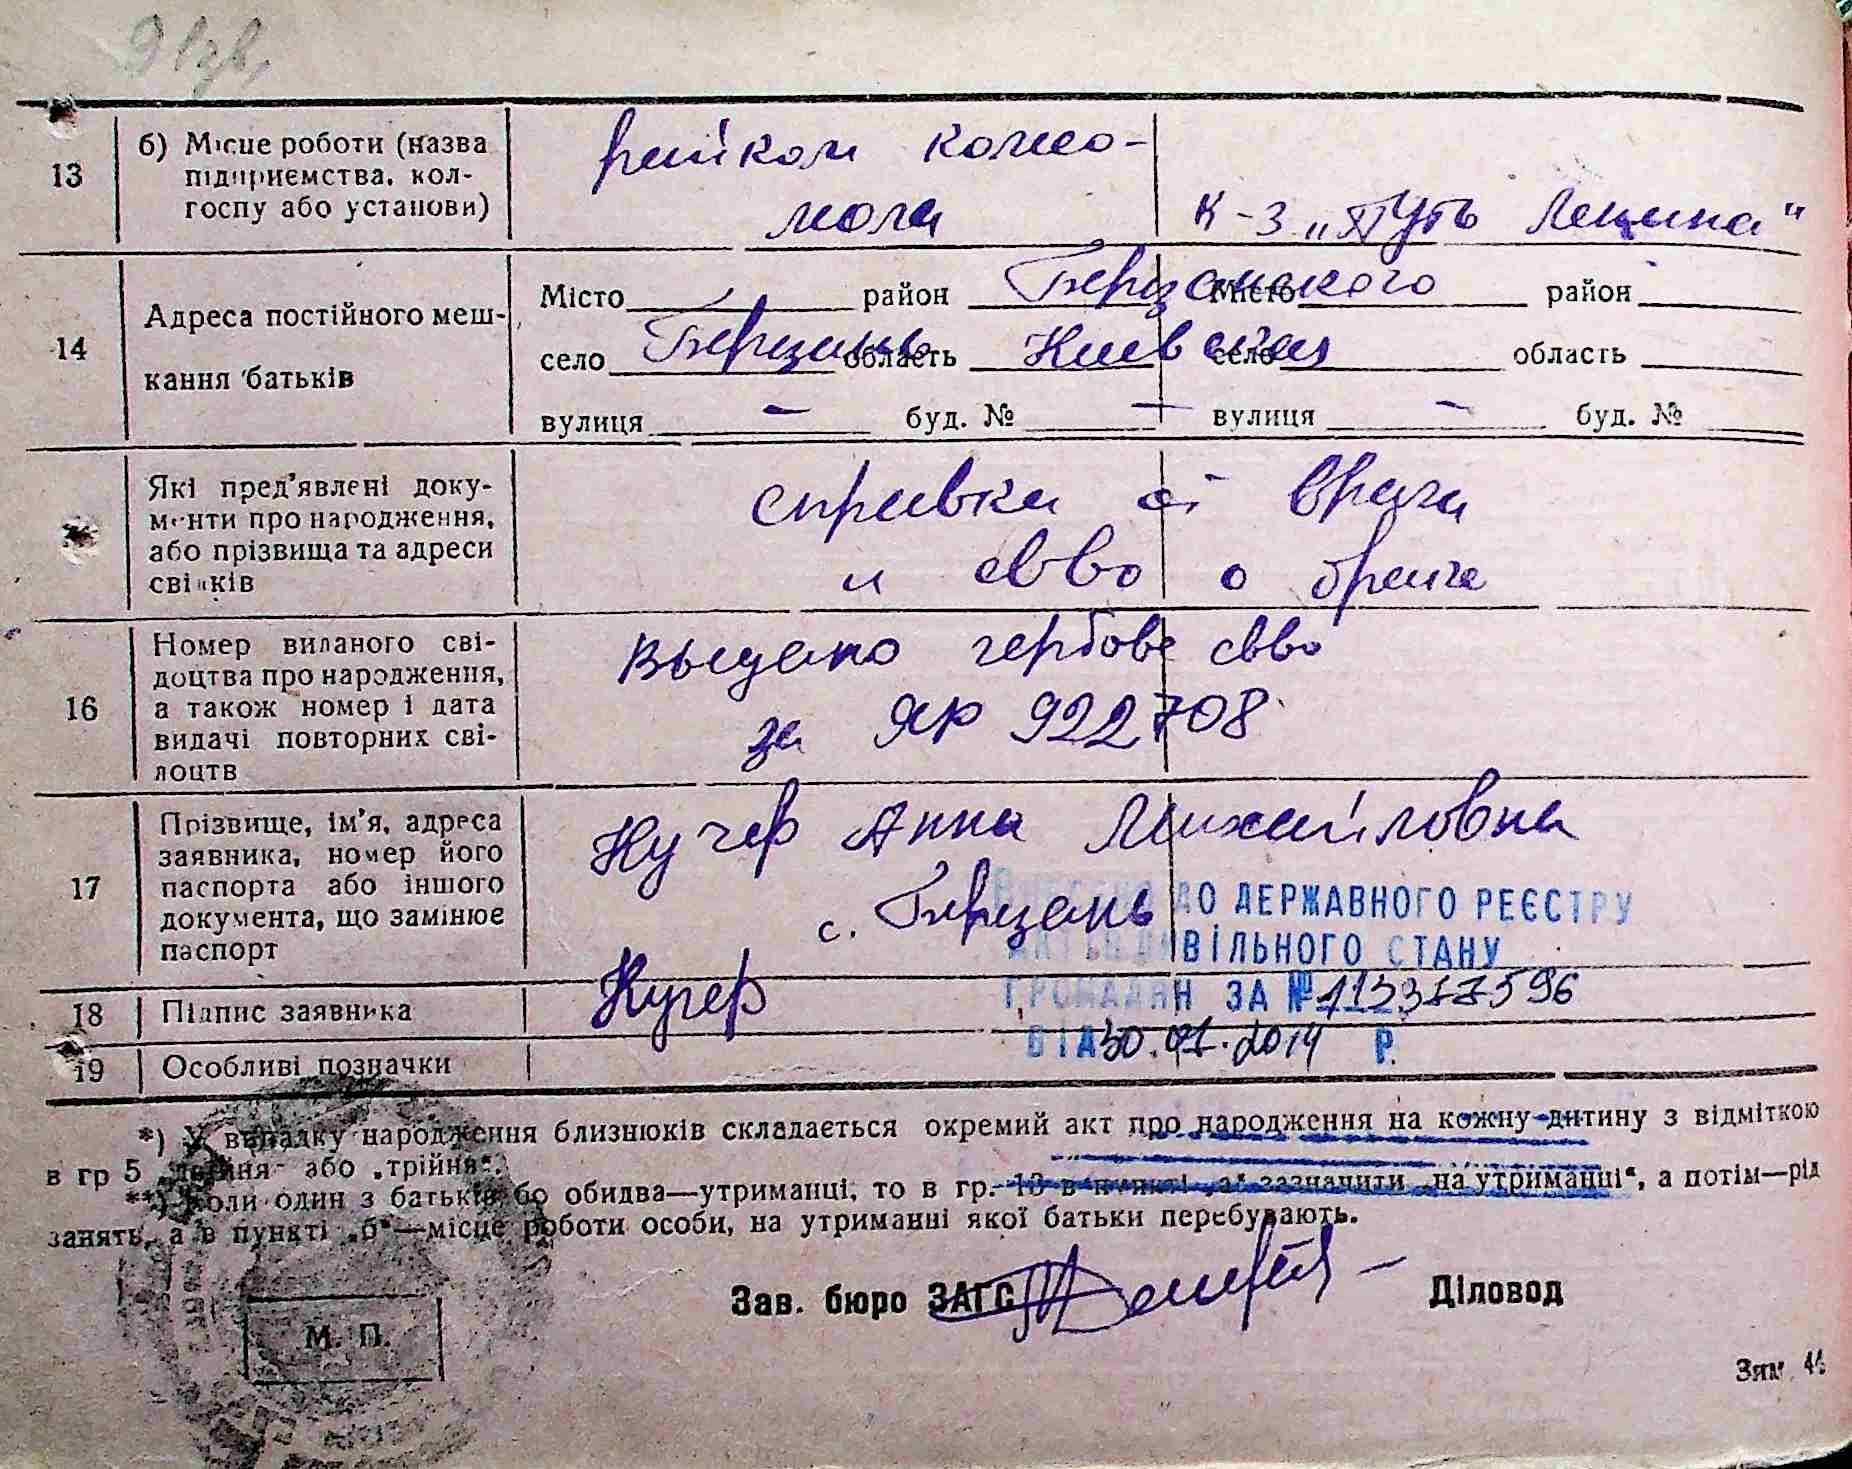 91зв.
13
б) Місце роботи (назва
підприємства, кол-
госпу або установи)
райком комсо-
мола
к-з „Путь Ленина"
14
Адреса постійного меш-
кання батьків
Місто район Березанського Місто район
село Березань область Киевская село область
вулиця — буд. № — вулиця — буд. №
Які пред'явлені доку-
менти про народження,
або прізвища та адреси
свідків
справка от врача
и св-во о браке
16
Номер виданого сві-
доцтва про народження,
а також номер і дата
видачі повторних сві-
доцтв
Выдано гербове св-во
за ЯР 922708
17
Прізвище, ім'я, адреса
заявника, номер його
паспорта або іншого
документа, що замінює
паспорт
Кучер Анна Михайловна
с. Березань
ВНЕСЕНО ДО ДЕРЖАВНОГО РЕЄСТРУ
АКТІВ ЦИВІЛЬНОГО СТАНУ
ГРОМАДЯН ЗА №113377596
ВІД 30.01.2014 Р.
18
Підпис заявника
Кучер
19
Особливі позначки
*) У випадку народження близнюків складається окремий акт про народження на кожну дитину з відміткою
в гр 5 „двійня" або „трійня".
**) Коли один з батьків або обидва—утриманці, то в гр. 13 в пункті „а" зазначити „на утриманні", а потім—рід
занять, а в пункті „б"—місце роботи особи, на утриманні якої батьки перебувають.
Зав. бюро ЗАГС
Діловод
М. П.
Зам. 44